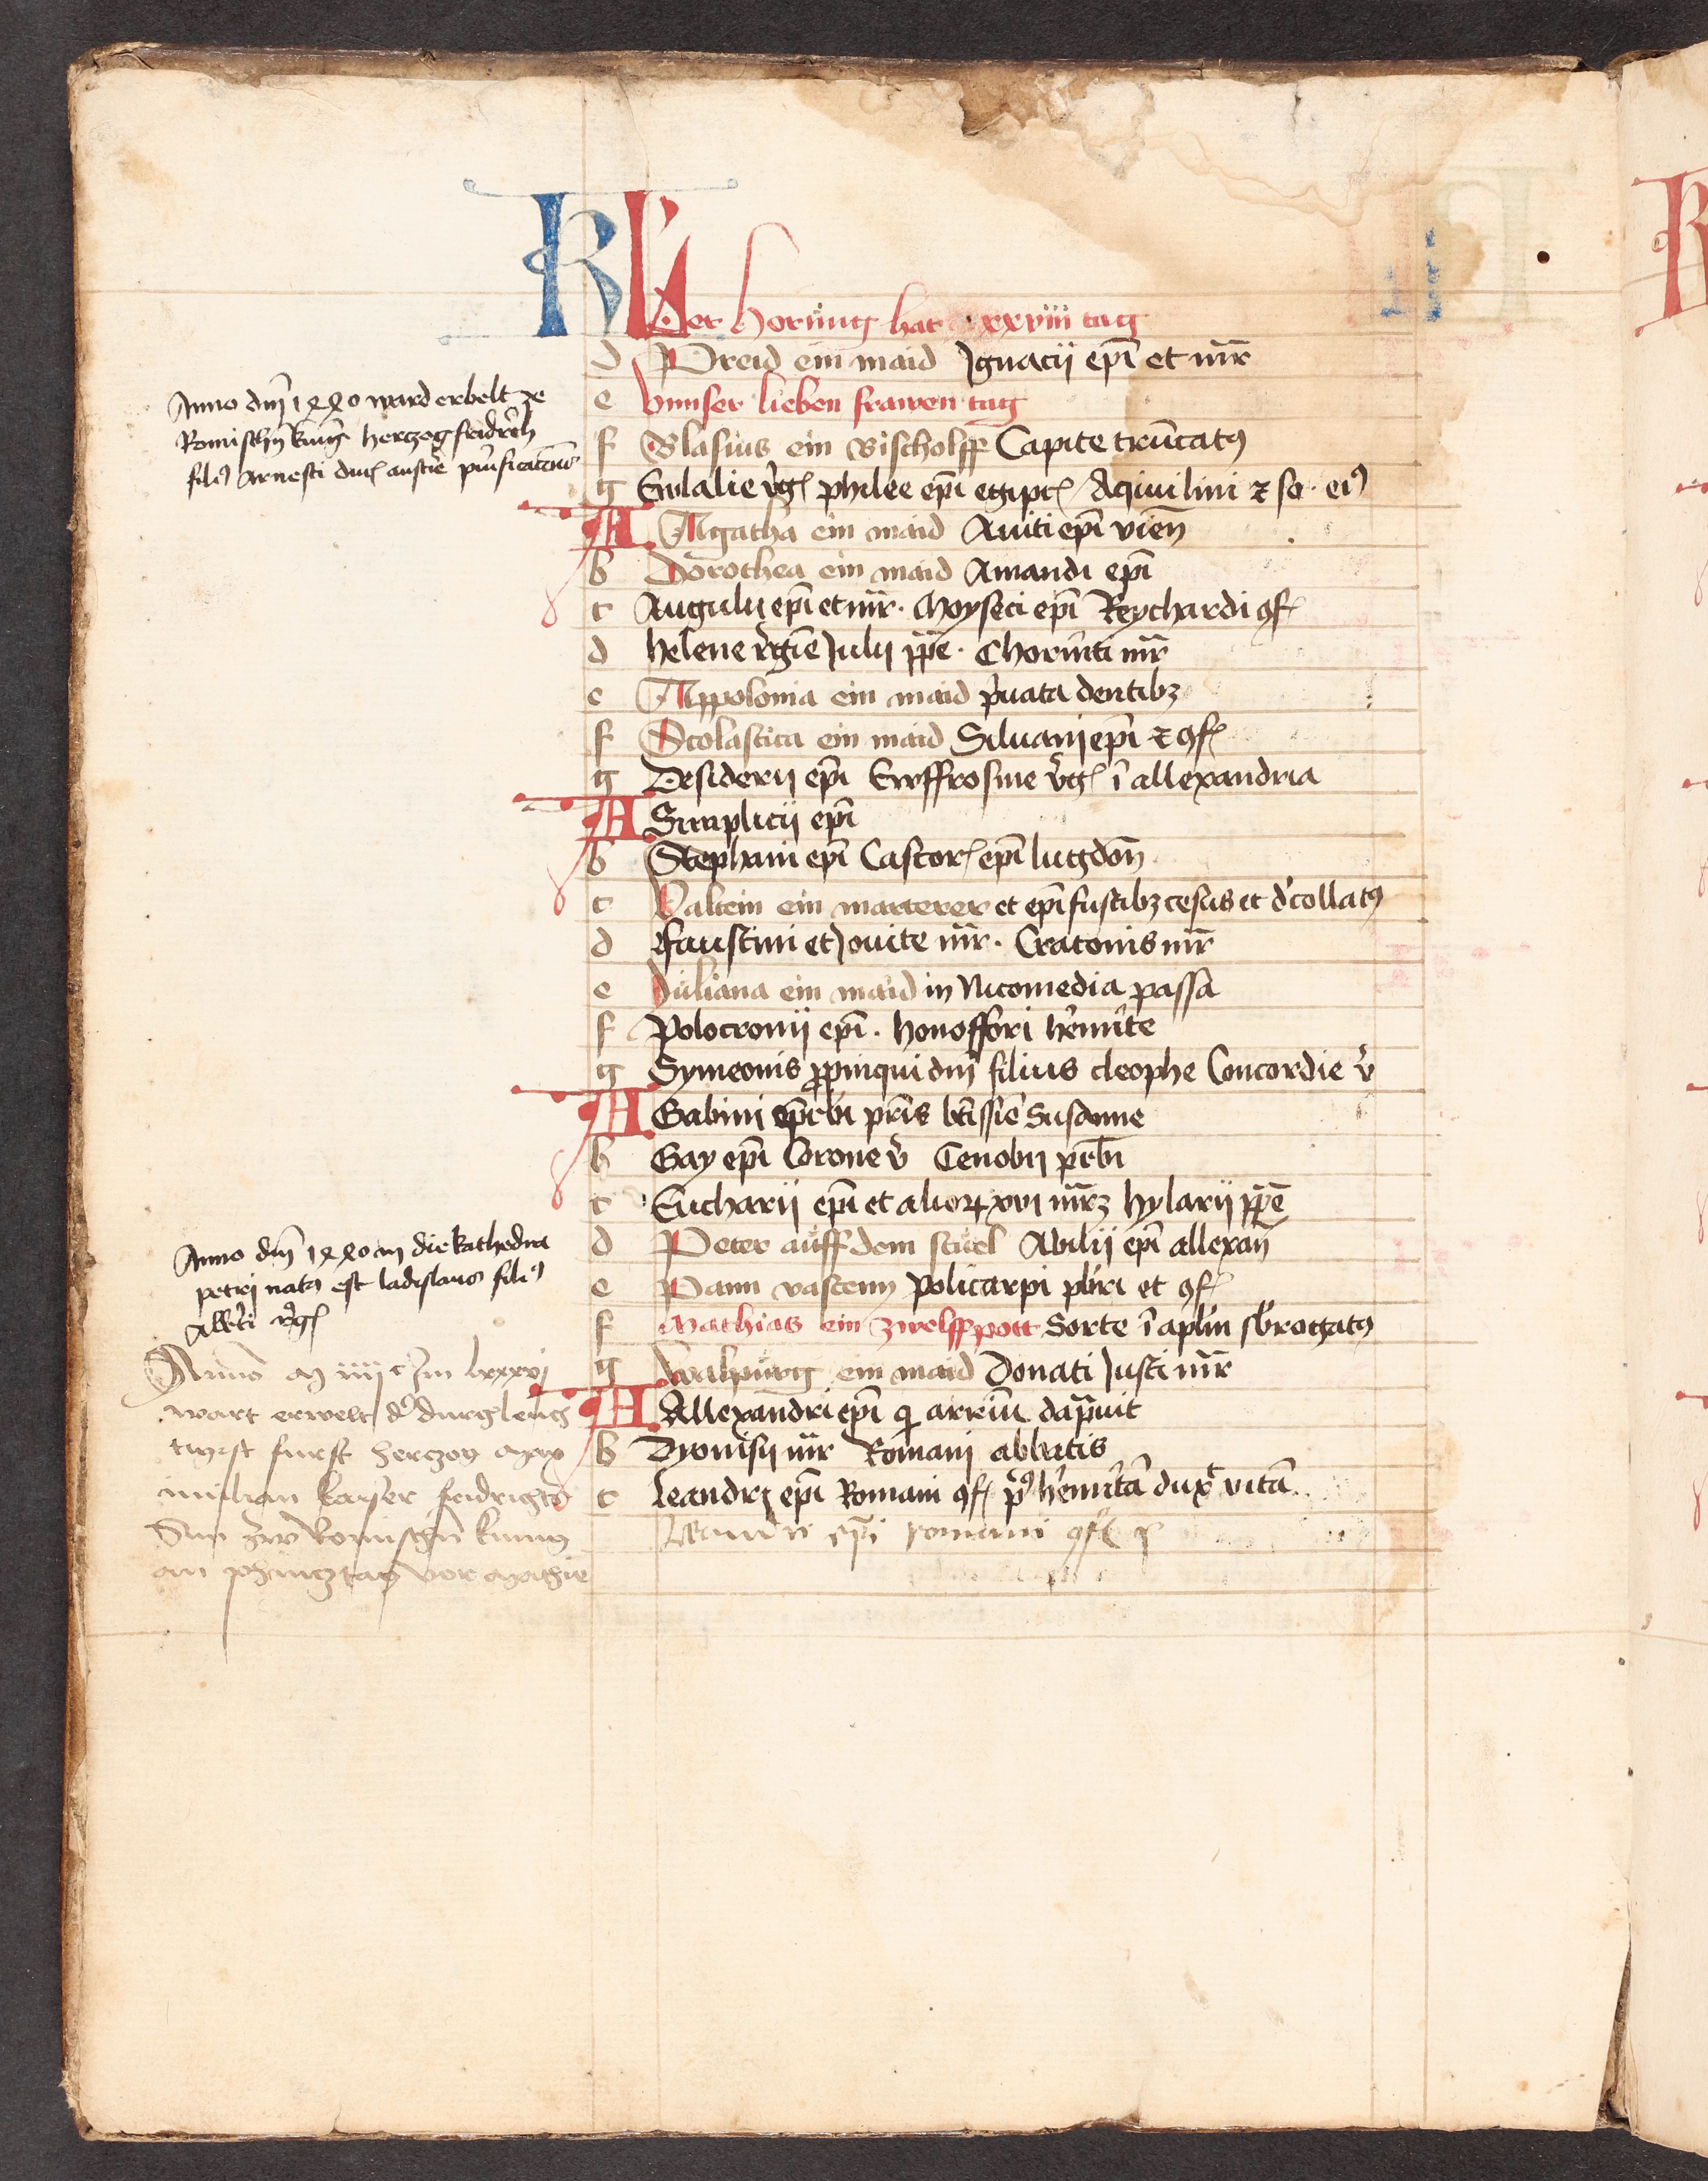 KL
Der hornung hat xxviii tag
d Preid ein maid Ignacii epi et mr
e Vnnser lieben frawen tag
f Blasius ein Bischolff Capite truncatꝰ
g Eulalie vgꝭ philee epi egiptꝭ Aquilini ⁊ so eiꝰ
A Agatha ein maid Auiti epi vien
b Dorothea ein maid Amandi epi
c Augulij epi et mr · Moyseti epi Reychardi ꝯf
d helene vgie Julij ppe · Chorinti mr
e Appolonia ein maid puata dentibꝫ
f Scolastica ein maid Siluani epi ⁊ ꝯf
g Desiderij epi Ewffrosine vgꝭ i allexandria
A Simplicij epi
b Stephani epi Castorꝭ epi lugdon
c Valtein ein marterer et epi fustibꝫ cesus et dcollatꝰ
d Faustini et Jouite mr · Cratonis mr
e Juliana ein maid in Nicomedia passa
f Polocronii epi · honoffori hemite
g Symeonis ppinqui dni filius cleophe Concordie v
A Gabini prbi pris btissie Susanne
b Gay epi Corone v Cenobij prbi
c Eucharii epi et alioꝝ xvi mrꝫ hylarii ppe
d Peter auff dem stuel Abilij epi allexan
e Pann vastenn Policarpi pbri et ꝯf
f Mathias ein zwelffpott Sorte i aplm sbrogatꝰ
g Walpurg ein maid Donati Justi mr
A Allexandri epi q arrium dapnuit
b Dyonisij mr Romani abbatis
c leandrj epi Romani ꝯf pꝰ hemita duxt vita
Leandri epi romani ꝯf p
Anno dni 1440 ward erbelt ze
Romischn kunig herczog fridrich
filiꝰ Arnesti ducꝭ austrie purificacionis
Anno dni 1440 in die kathedra
petrj natꝰ est ladislaus filiꝰ
Albti rgꝭ
Anno m iiiic Im lxxxvj
wart erwelt d durgleuch
tigist furst herczog max
imilian kayser fridrichs
Sun zw Romischn kunig
an phincztag vor mathie